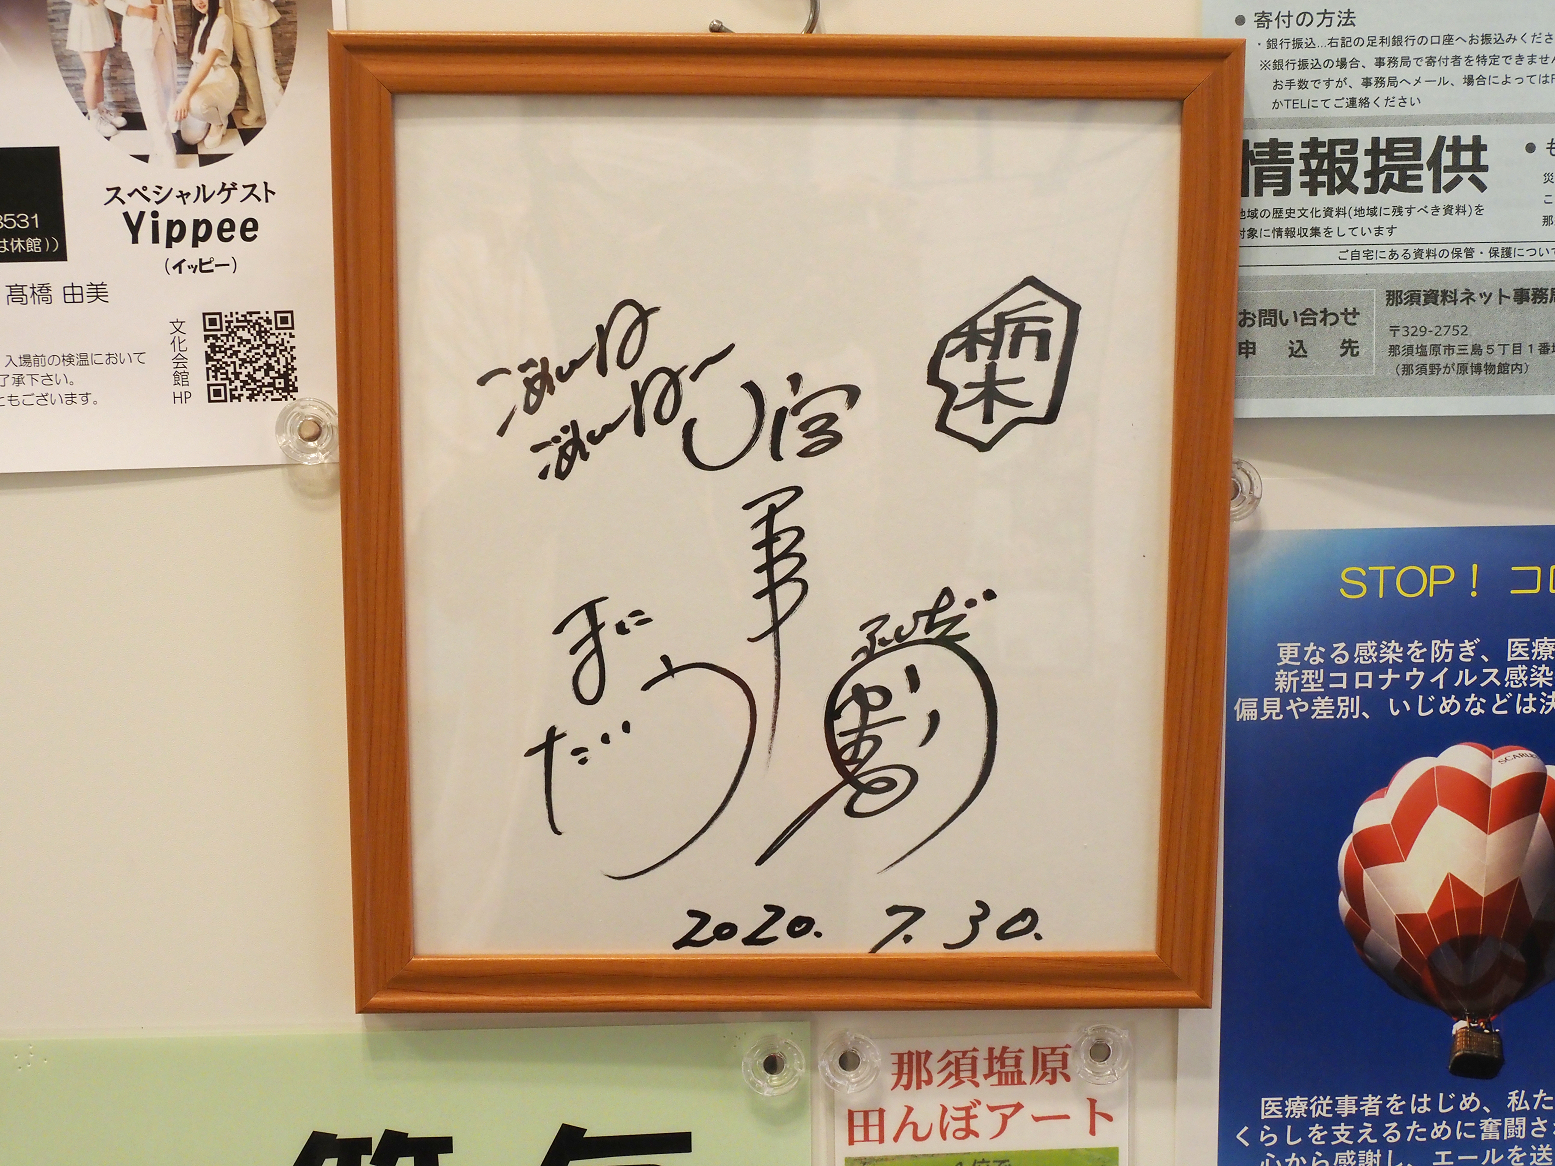 スペシャルゲスト
Yippee
(イッピー)
3531
は休館))
髙橋 由美
入場前の検温において
了承下さい。
ともございます。
文化会館HP
ごめんね
ごめんねー
U字
栃木
2020. 7. 30.
● 寄付の方法
・銀行振込…右記の足利銀行の口座へお振込みくださ
※銀行振込の場合、事務局で寄付者を特定できません
お手数ですが、事務局へメール、場合によってはF
かTELにてご連絡ください
情報提供
地域の歴史文化資料(地域に残すべき資料)を
対象に情報収集をしています
ご自宅にある資料の保管・保護につい
お問い合わせ
申込先
那須資料ネット事務局
〒329-2752
那須塩原市三島5丁目1番地
(那須野が原博物館内)
STOP! コロ
更なる感染を防ぎ、医療
新型コロナウイルス感染
偏見や差別、いじめなどは決
SCARLE
医療従事者をはじめ、私た
くらしを支えるために奮闘さ
心から感謝し、エールを送
那須塩原
田んぼアート